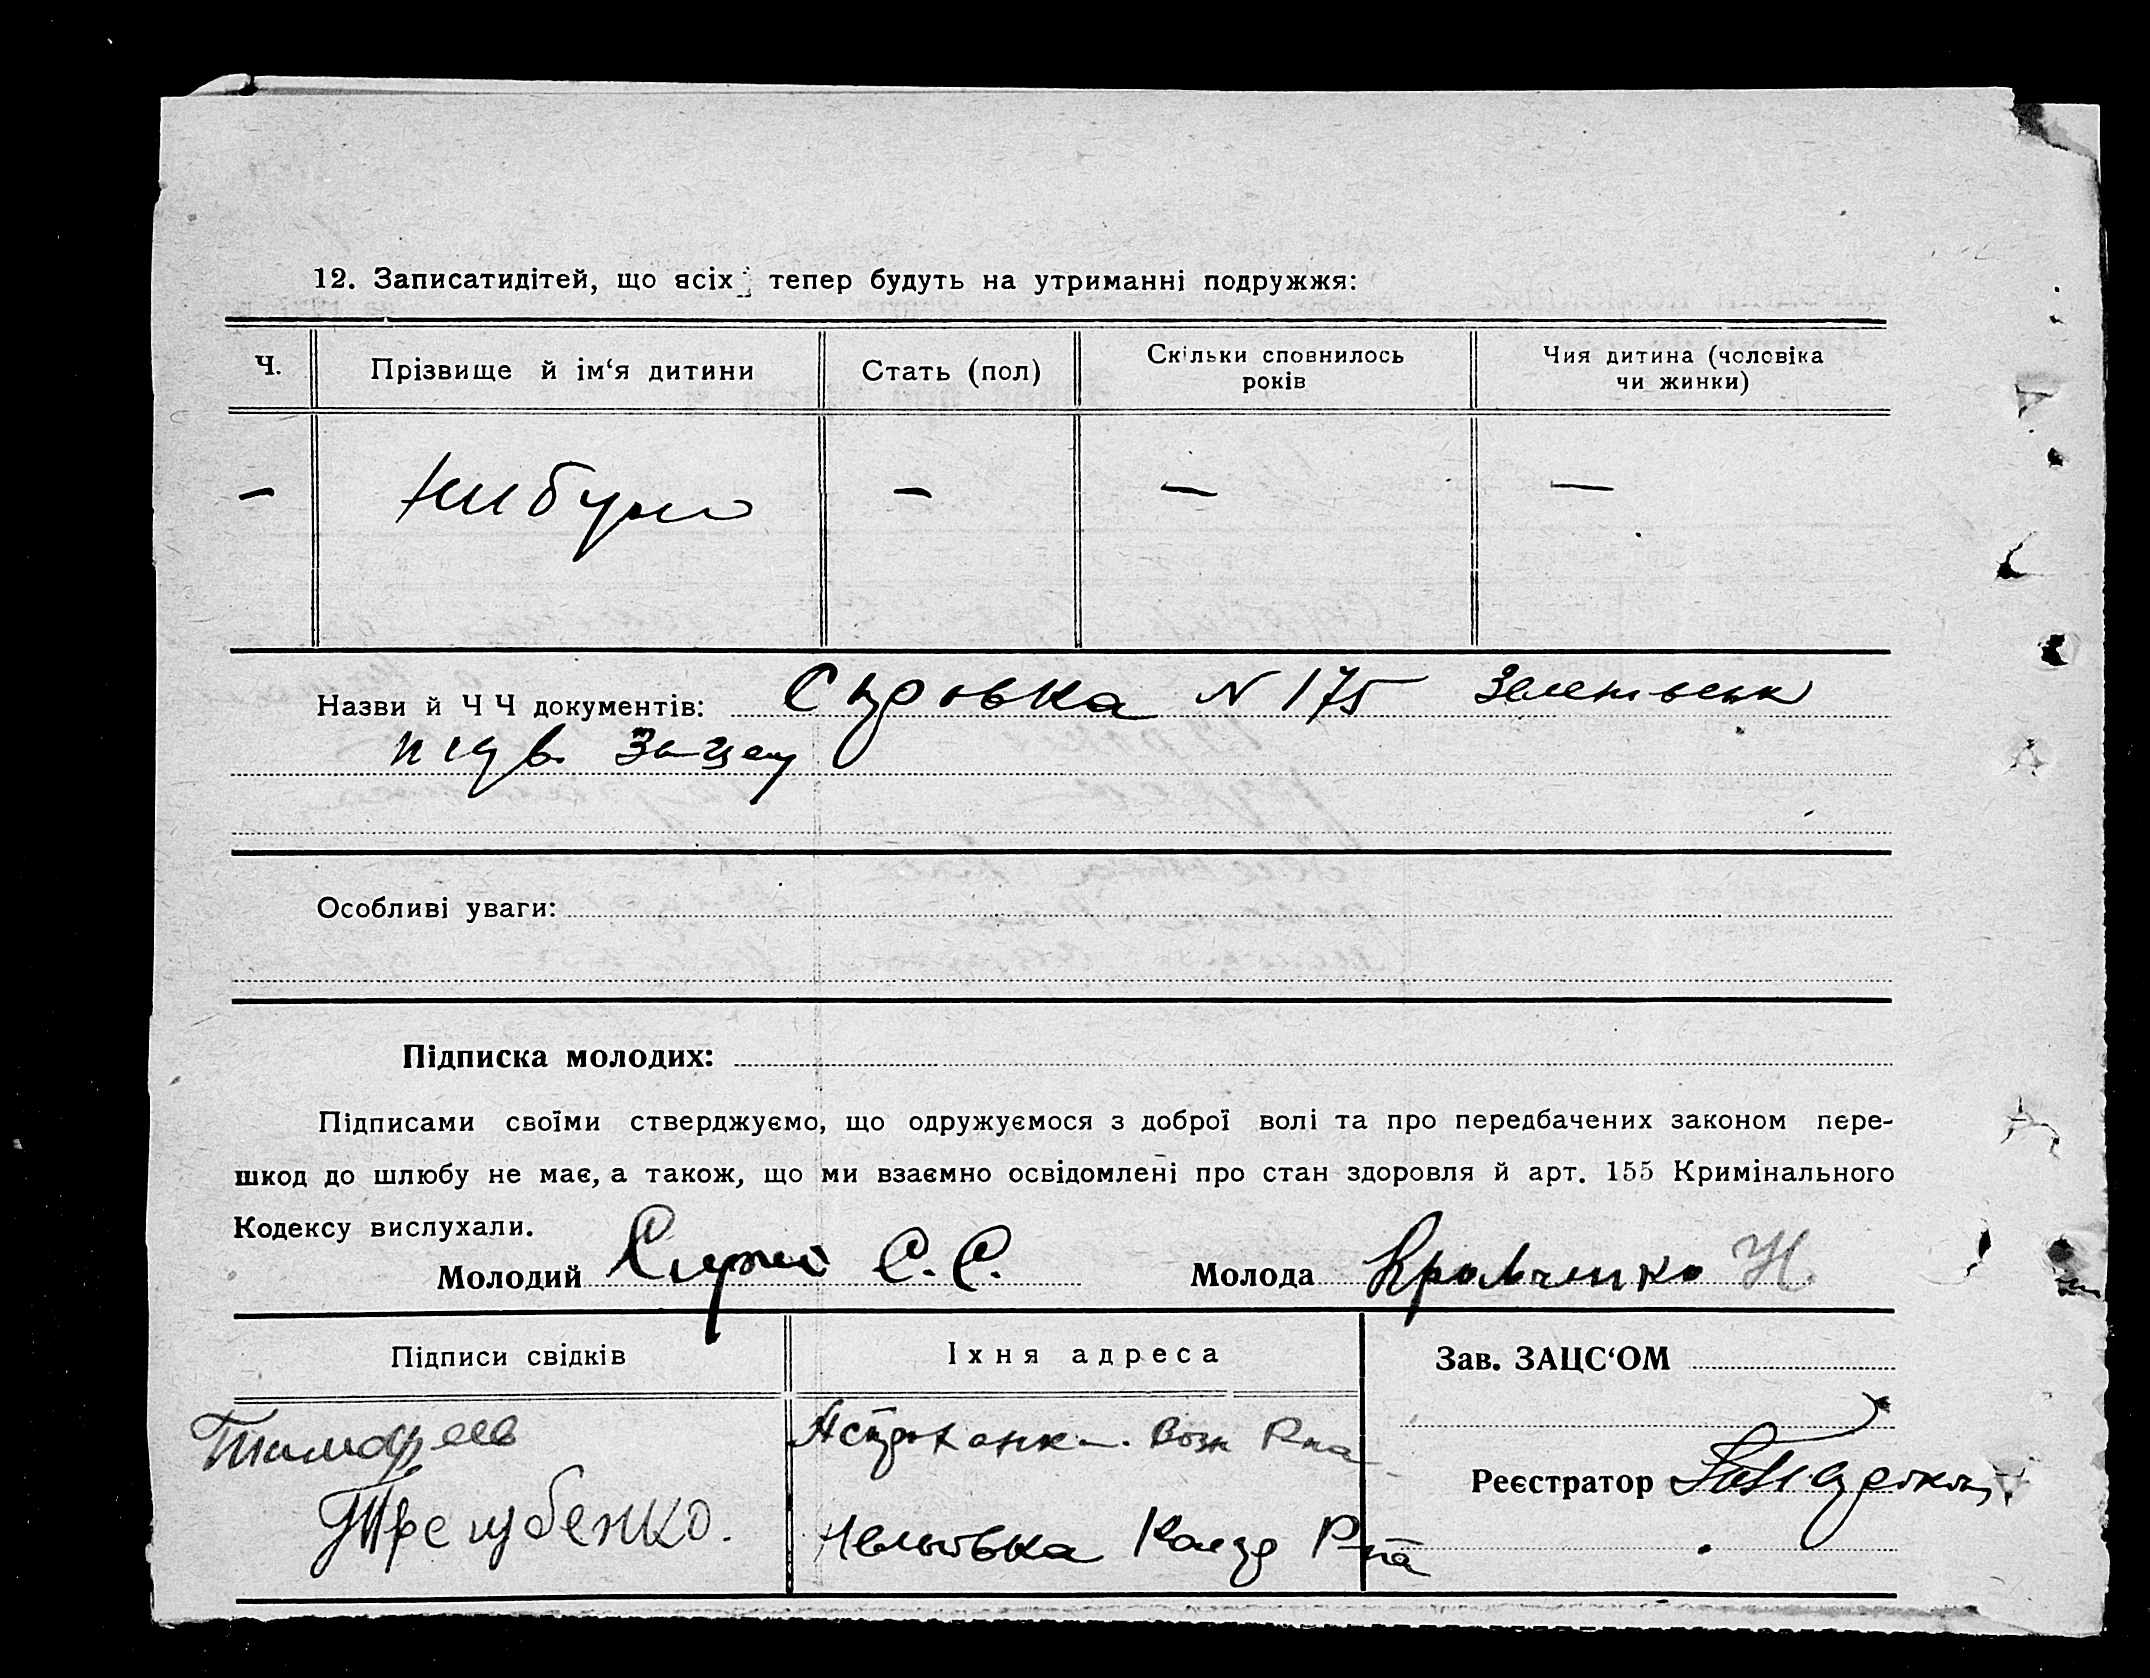 12. Записатидітей, що всіх тепер будуть на утриманні подружжя:
Ч.
Прізвище й ім‘я дитини
Стать (пол)
Скільки сповнилось років
Чия дитина (чоловіка чи жинки)
—
Нибуло
—
—
—
Назви й Ч Ч документів: Справка N 175
підв. Зацеу
Особливі уваги:
Підписка молодих:
Підписами своїми стверджуємо, що одружуємося з доброї волі та про передбачених законом пере-
шкод до шлюбу не має, а також, що ми взаємно освідомлені про стан здоровля й арт. 155 Кримінального
Кодексу вислухали.
Молодий С.С. Молода Кравченко Н.
Підписи свідків
Їхня адреса
Зав. ЗАЦС‘ОМ
Тимофеев
Астраханка. Возн Р-на
Реєстратор
Трегубенко.
Р-на